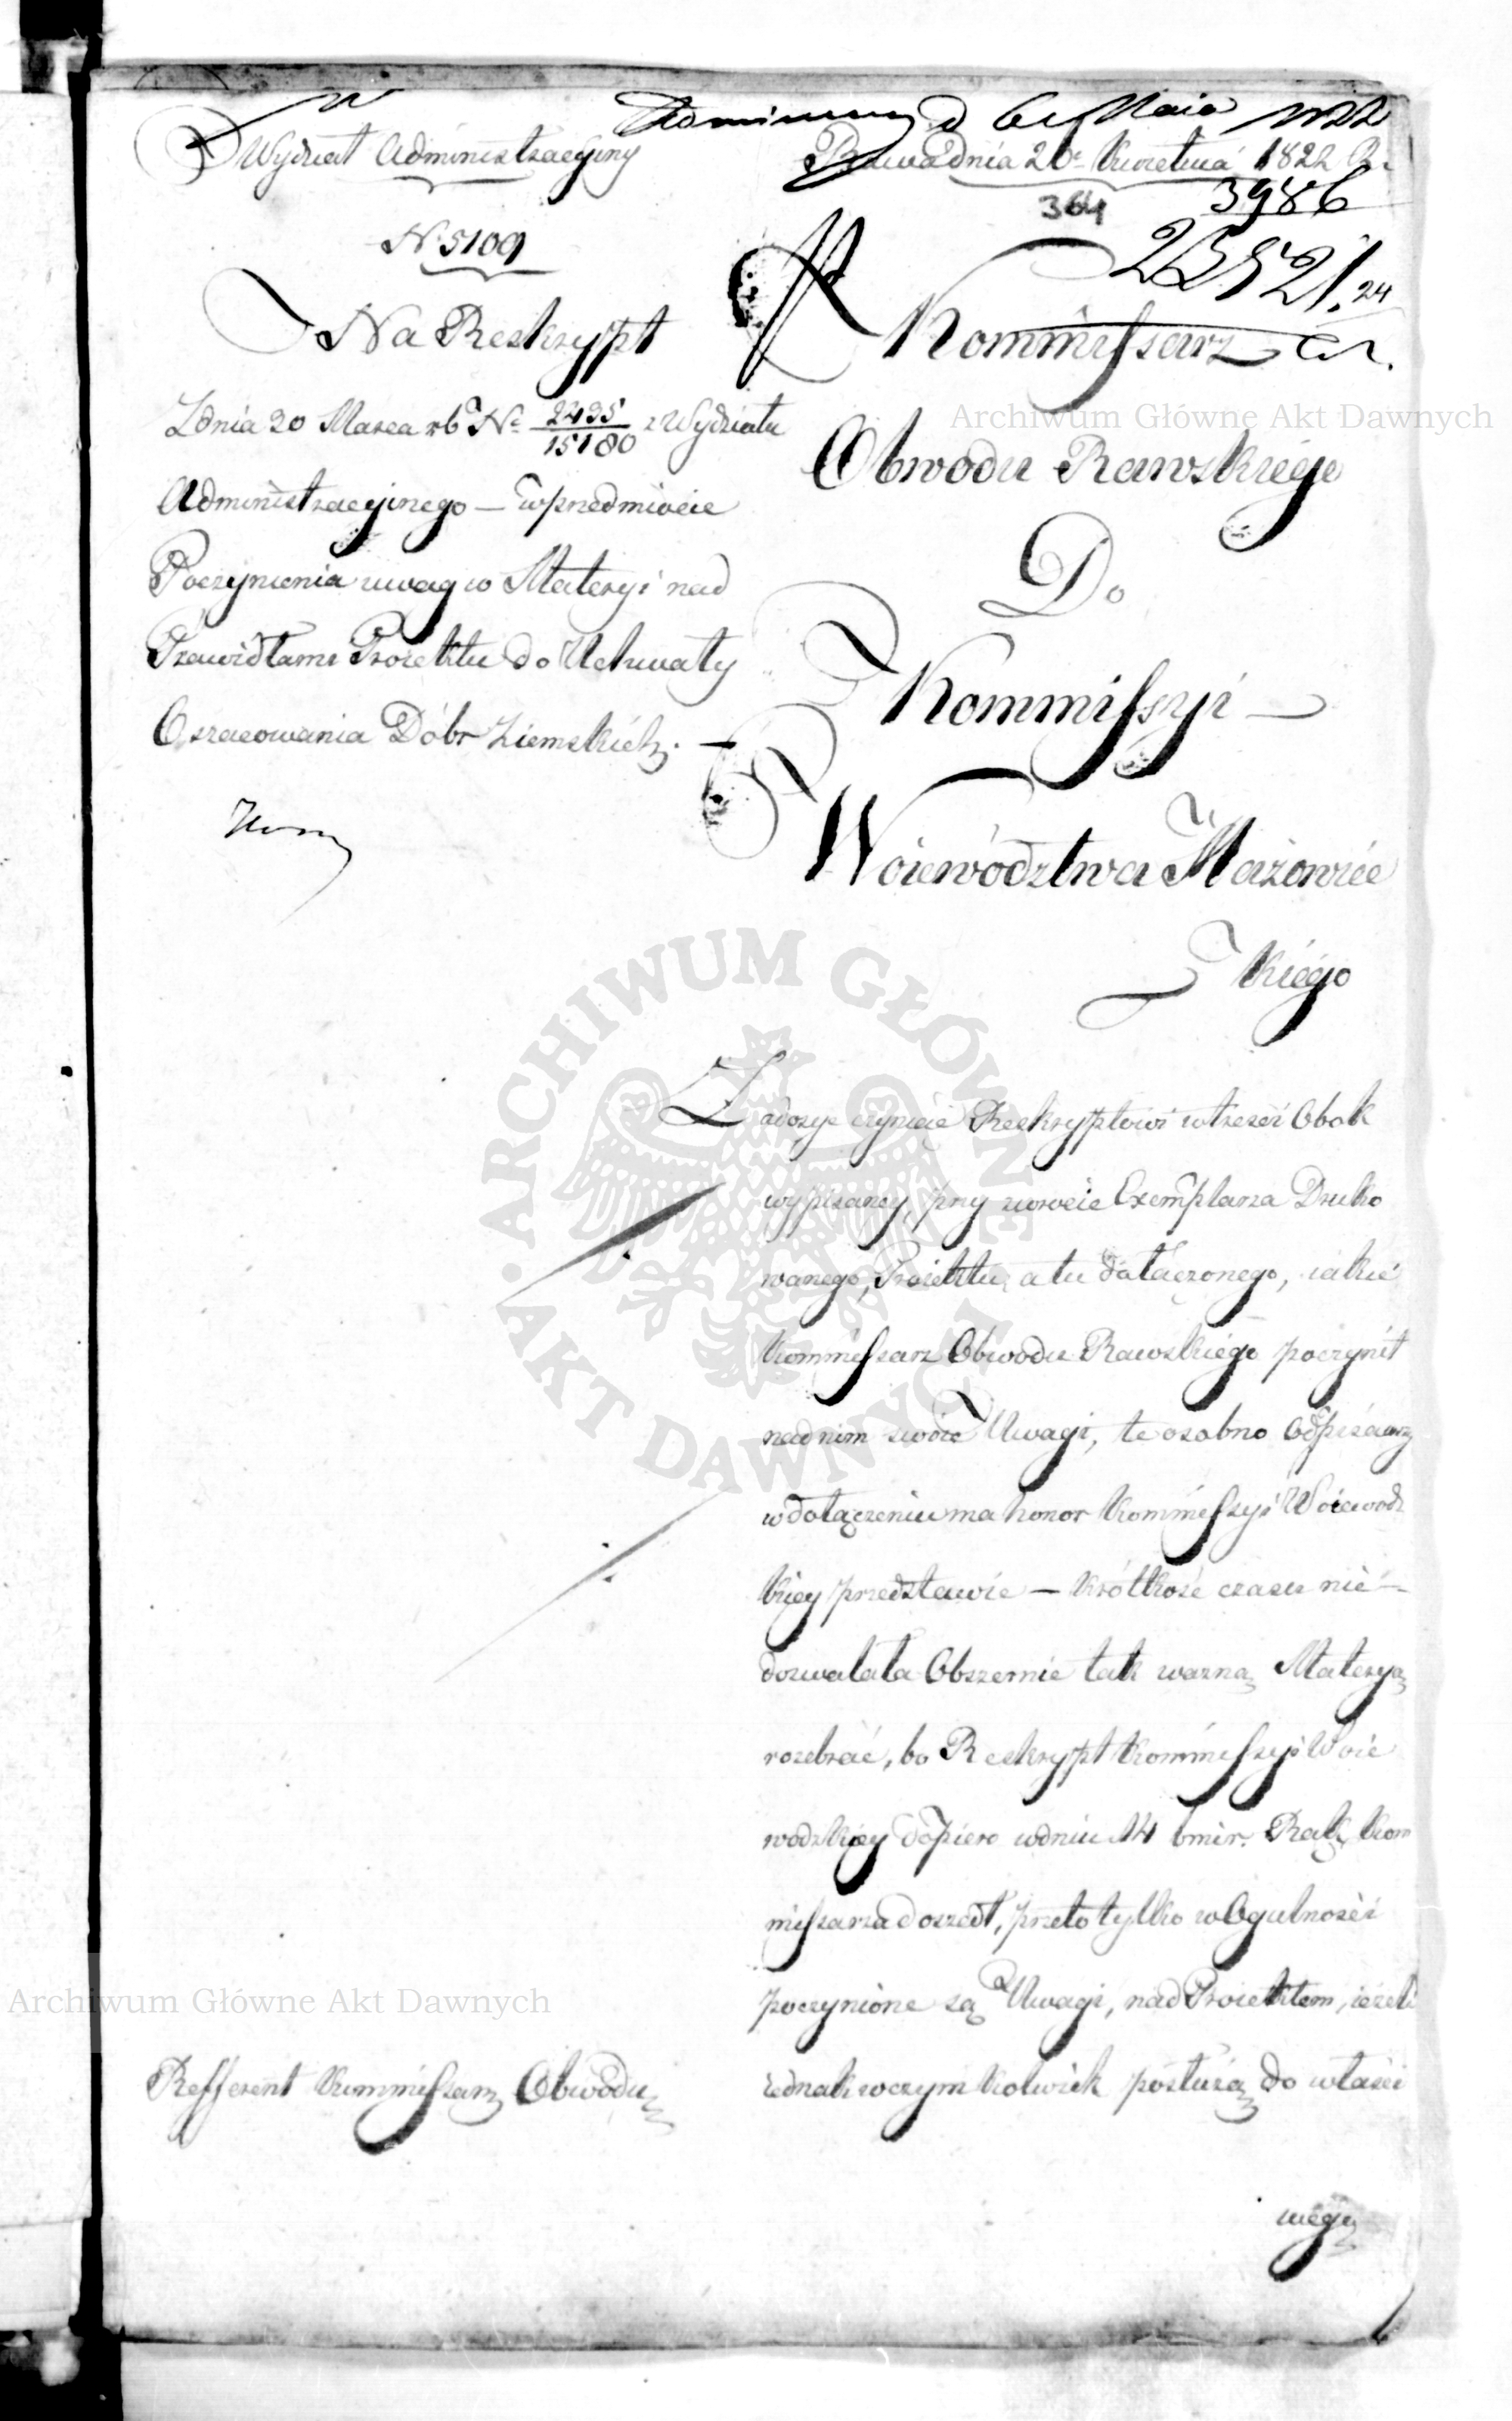 Wydział Administracyiny
N 5109
Na Reskrypt
Zdnia 20 Marca rb No 2435/15180 z Wydziału
Administracyinego — wprzedmiocie
Poczynienia uwag w Materyi nad
Prawidłami Proiektu do Uchwały
Oszacowania Dóbr Ziemskich. —
d 6 Maia 1822
Rawa dnia 20 Kwietnia 1822 R.
364
3986
Kommissarz
Archiwum Główne Akt Dawnych
Obwodu Rawskiego
Do
Kommissyi —
Woiewództwa Mazowiec
kiego
ARCHIWUM GŁÓWNE AKT DAWNYCH
Zadosyc czyniąc Reskryptowi wtreści Obok
wypisaney, przy zwrocie Exemplarza Druko
wanego, Proiektu, a tu dołączonego, iakie
Kommissarz Obwodu Rawskiego poczynił
nad nim swoie Uwagi, te osobno Odpisawszy
w dołączeniu ma honor Kommissyi Woiewodz
kiey przedstawić — Krótkość czasu nie —
dozwalała Obszernie tak ważną Materyą
rozebrać, bo Reskrypt Kommissyi Woie
wodzkiey dopiero wdniu 14 bmir. Rąk Kom
missarza doszedł, przeto tylko w Ogulności
poczynione są Uwagi, nad Proiektem, ieżeli
iednak wczym kolwiek posłużą do właści
wego
Archiwum Główne Akt Dawnych
Refferent Kommissarz Obwodu